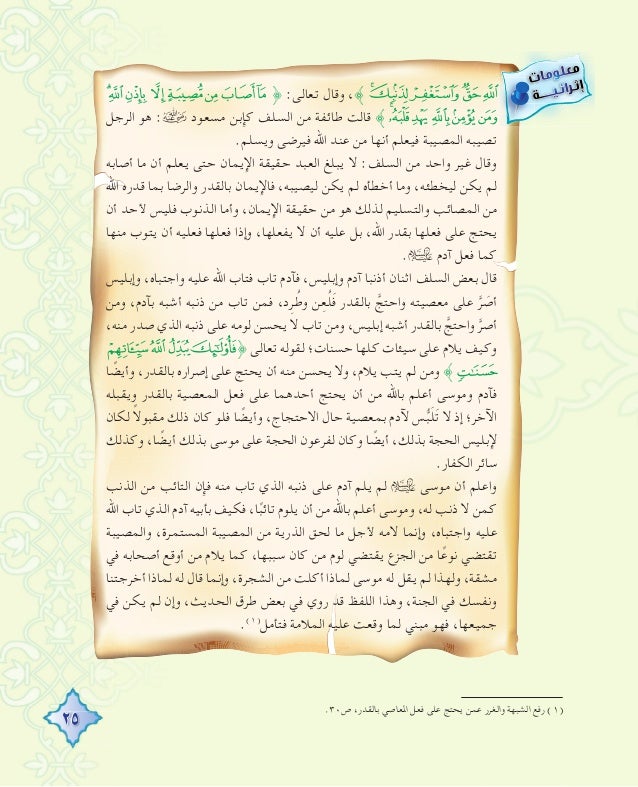 معلومات
إثرائية
ٱللَّهِ حَقٌّ وَٱسْتَغْفِرْ لِذَنۢبِكَ ﴾، وقال تعالى: ﴿ مَآ أَصَابَ مِن مُّصِيبَةٍ إِلَّا بِإِذْنِ ٱللَّهِ
وَمَن يُؤْمِنۢ بِٱللَّهِ يَهْدِ قَلْبَهُۥ ﴾ قالت طائفة من السلف كابن مسعود رضي الله عنه: هو الرجل
تصيبه المصيبة فيعلم أنها من عند الله فيرضى ويسلم.
وقال غير واحد من السلف: لا يبلغ العبد حقيقة الإيمان حتى يعلم أن ما أصابه
لم يكن ليخطئه، وما أخطأه لم يكن ليصيبه، فالإيمان بالقدر والرضا بما قدره الله
من المصائب والتسليم لذلك هو من حقيقة الإيمان، وأما الذنوب فليس لأحد أن
يحتج على فعلها بقدر الله، بل عليه أن لا يفعلها، وإذا فعلها فعليه أن يتوب منها
كما فعل آدم عليه السلام.
قال بعض السلف اثنان أذنبا آدم وإبليس، فآدم تاب فتاب الله عليه واجتباه، وإبليس
أصَرَّ على معصيته واحتجَّ بالقدر فَلُعِنَ وطُرِد، فمن تاب من ذنبه أشبه بآدم، ومن
أصرَّ واحتجَّ بالقدر أشبه إبليس، ومن تاب لا يحسن لومه على ذنبه الذي صدر منه،
وكيف يلام على سيئات كلها حسنات؛ لقوله تعالى ﴿ فَأُوْلَٰٓئِكَ يُبَدِّلُ ٱللَّهُ سَيِّـَٔاتِهِمْ
حَسَنَٰتٍ ﴾ ومن لم يتب يلام، ولا يحسن منه أن يحتج على إصراره بالقدر، وأيضًا
فآدم وموسى أعلم بالله من أن يحتج أحدهما على فعل المعصية بالقدر ويقبله
الآخر؛ إذ لا تَلَبُّس لآدم بمعصية حال الاحتجاج، وأيضًا فلو كان ذلك مقبولاً لكان
لإبليس الحجة بذلك، أيضًا وكان لفرعون الحجة على موسى بذلك أيضًا، وكذلك
سائر الكفار.
واعلم أن موسى عليه السلام لم يلم آدم على ذنبه الذي تاب منه فإن التائب من الذنب
كمن لا ذنب له، وموسى أعلم بالله من أن يلوم تائبًا، فكيف بأبيه آدم الذي تاب الله
عليه واجتباه، وإنما لامه لأجل ما لحق الذرية من المصيبة المستمرة، والمصيبة
تقتضي نوعًا من الجزع يقتضي لوم من كان سببها، كما يلام من أوقع أصحابه في
مشقة، ولهذا لم يقل له موسى لماذا أكلت من الشجرة، وإنما قال له لماذا أخرجتنا
ونفسك في الجنة، وهذا اللفظ قد روي في بعض طرق الحديث، وإن لم يكن في
جميعها، فهو مبني لما وقعت عليه الملامة فتأمل(١).
(١) رفع الشبهة والغرر عمن يحتج على فعل المعاصي بالقدر، ص٣٠.
٢٥